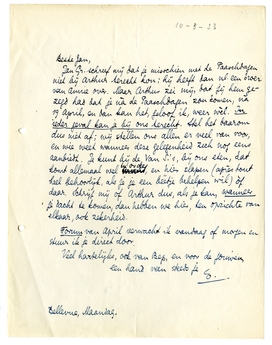 10-8-33
Beste Jan,
Jan Gr. schreef mij dat je misschien met de Paaschdagen
niet bij Arthur terecht kon; hij heeft dan nl een broer
van Annie over. Maar Arthur zei mij, dat hij hem ge-
zegd had dat je vóór de Paaschdagen zou komen, vóór
19 april, en dan kan het, geloof ik, weer wel. In
ieder geval kan je bij ons terecht. Stel het daarom
dus niet af; wij stellen ons allen er veel van voor,
en wie weet wanneer deze gelegenheid zich nog eens
aanbiedt. Je kunt bij de Van S.'s, bij ons eten, dat
komt allemaal wel in orde, en hier slapen (ofschoon
niet behoorlijk, als je je een beetje behelpen wil) of
daar. Schrijf mij of Arthur dus, als je kan, wanneer
je dacht te komen, dan hebben we hier, ten opzichte van
elkaar, ook zekerheid.
Forum van April verwacht ik vandaag of morgen en
stuur ik je direct door.
Veel hartelijks, ook van Bep, en voor de jouwen,
een hand van steeds je
E.
Bellevue, Maandag.